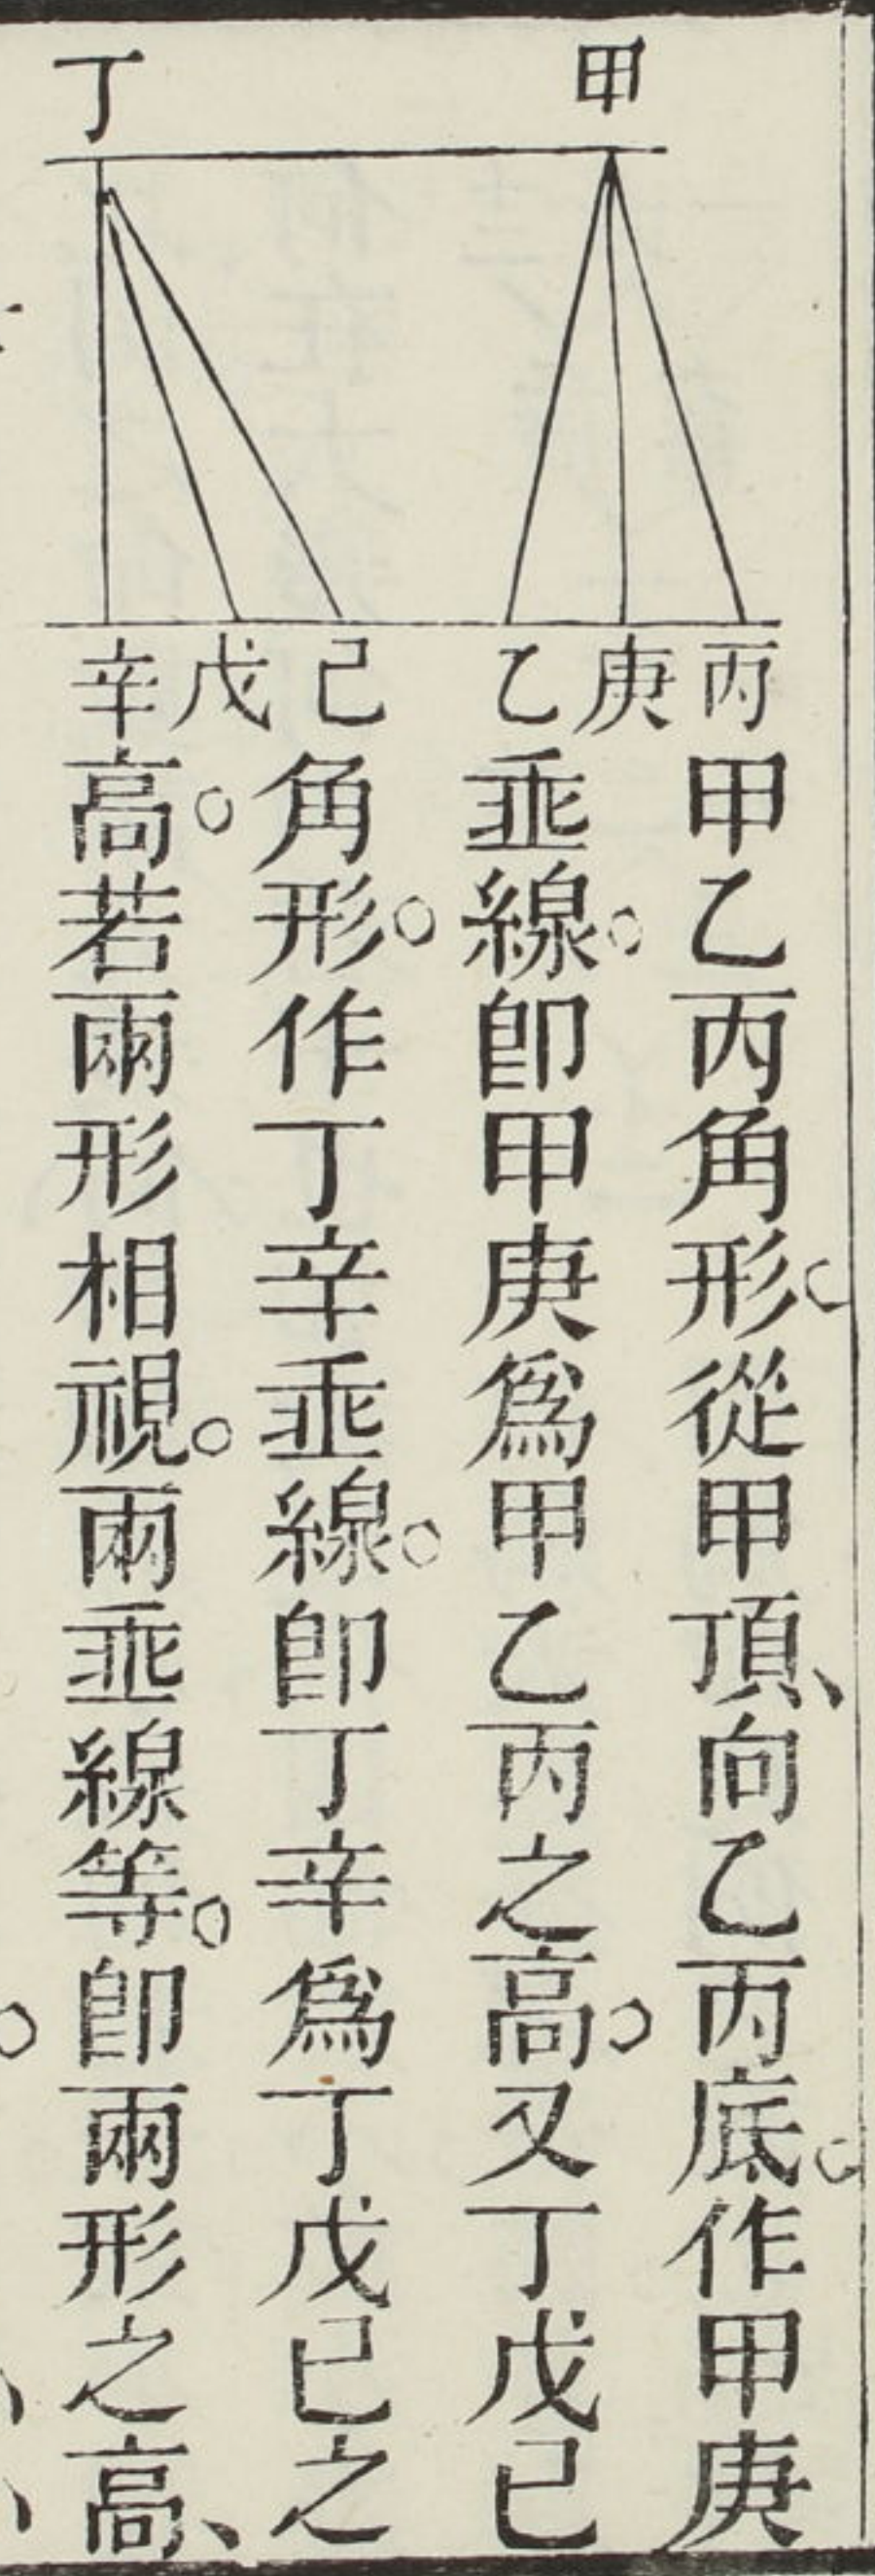 甲 丁
丙 庚 乙 己 戊 辛
甲乙丙角形。從甲頂、向乙丙底。作甲庚
垂線。卽甲庚爲甲乙丙之高。又丁戊己
角形。作丁辛垂線。卽丁辛爲丁戊己之
高。若兩形相視。兩垂線等。卽兩形之高、